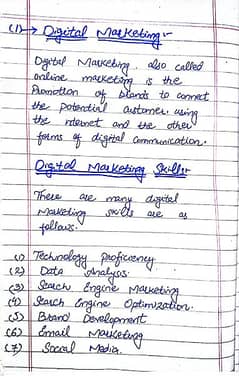 (1)→ Digital Marketing:-
Digital Marketing, also called
online marketing is the
Promotion of brands to connect
the potential customer using
the internet and the other
forms of digital communication.
Digital Marketing Skills:-
There are many digital
Marketing skills are as
follows:
(1) Technology proficency
(2) Data Analysis.
(3) Seach Engine Marketing
(4) Seach Engine Optimization.
(5) Brand Development
(6) Email Marketing
(7) Social Media.